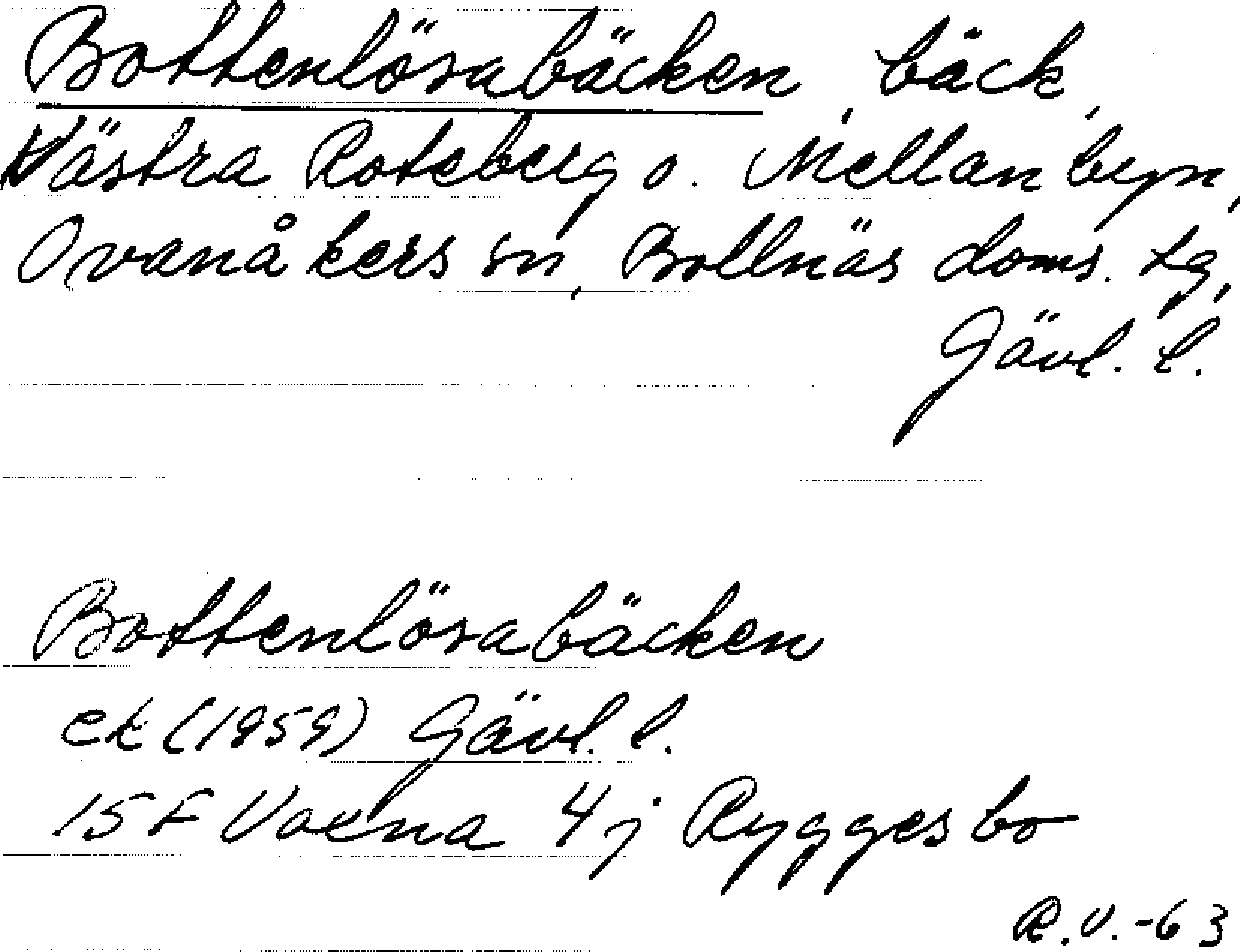 Bottenlösabäcken, bäck,
Västra Roteberg o. Mellanbyn,
Ovanåkers sn, Bollnäs doms. tg,
Gävl. l.
Bottenlösabäcken
ek (1959) Gävl. l.
15 F Voxna 4 j Ryggesbo
R.V.-63